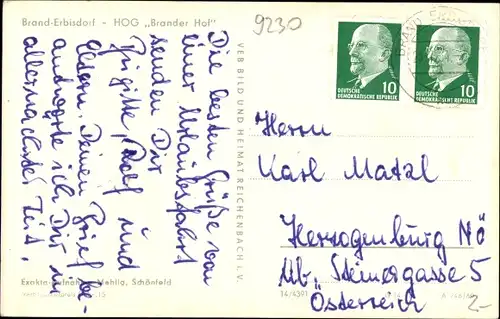 Brand-Erbisdorf - HOG „Brander Hof"
9230
Die besten Grüße von
einer Urlaubsfahrt
senden Dir
Brigitte, Rolf und
Eltern. Deinen Brief be-
antworte ich Dir in
allernächster Zeit.
VEB BILD UND HEIMAT REICHENBACH i. V.
BRAND
10
DEUTSCHE
DEMOKRATISCHE REPUBLIK
10
DEUTSCHE
DEMOKRATISCHE REPUBLIK
Herrn
Karl Matzl
Herzogenburg NÖ
Ub. Steinergasse 5
Österreich
Mehlig, Schönfeld
14/4391
2-